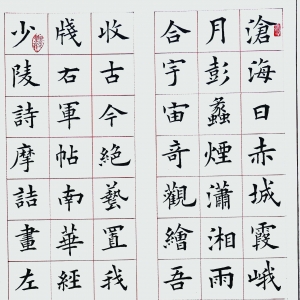 滄海日赤城霞峨
月彭蠡煙瀟湘雨
合宇宙奇觀繪吾
收古今絕藝置我
牋右軍帖南華經
少陵詩摩詰畫左